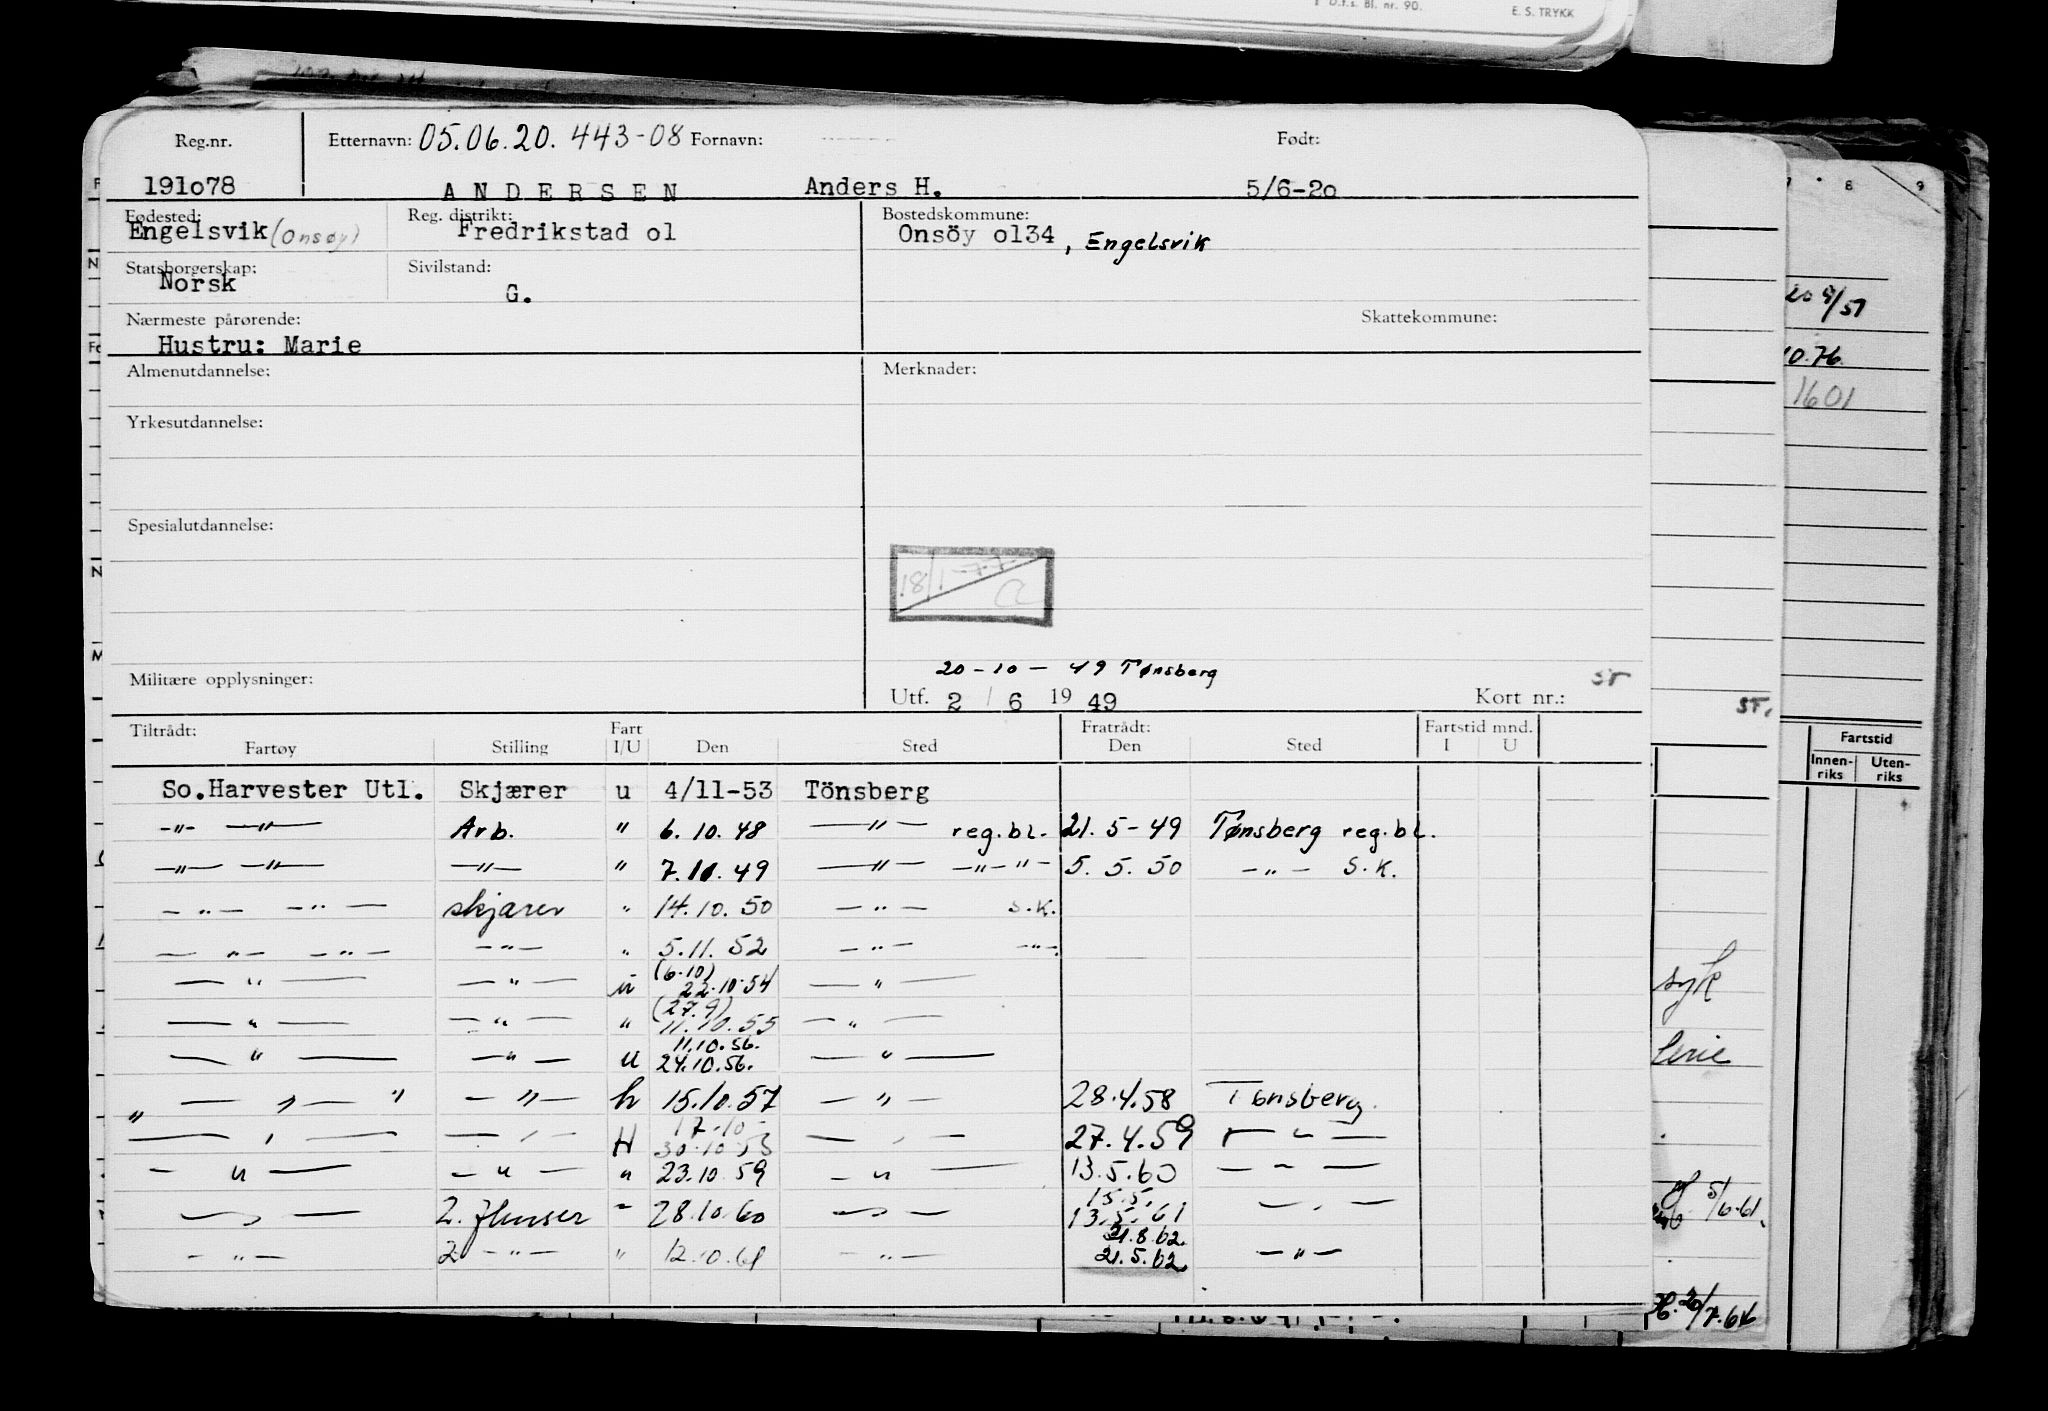 F D.f.s. Bl. nr. 90.
E. S. TRYKK
Reg.nr. Etternavn: 05.06.20. 443-08 Fornavn: Født:
191o78 A N D E R S E N Anders H. 5/6-2o
Fødested: Reg. distrikt: Bostedskommune:
Engelsvik (Onsøy) Fredrikstad ol Onsöy ol34, Engelsvik
Statsborgerskap: Sivilstand:
Norsk G.
Nærmeste pårørende: Skattekommune:
Hustru: Marie
Almenutdannelse: Merknader:
Yrkesutdannelse:
Spesialutdannelse:
18/1-77
20-10-49 Tønsberg
Militære opplysninger: Utf. 2 / 6 19 49 Kort nr.:
Tiltrådt: Fart Fratrådt: Fartstid mnd.
Fartøy Stilling I/U Den Sted Den Sted I U
So.Harvester Utl. Skjærer u 4/11-53 Tönsberg
-"- -"- Arb. " 6.10.48 -"- reg.bl. 21.5-49 Tønsberg reg.bl.
-"- -"- -"- " 7.10.49 -"- -"-"- 5.5.50 -"- S.K.
-"- -"- skjærer " 14.10.50 -"- S.K.
-"- -"- -"- " 5.11.52 -"- -"-
-"- -"- u (6.10) 22.10.54 -"-
-"- -"- " (27.9) 11.10.55 -"-
-"- -"- u 11.10.56. 24.10.56. -"-
" -"- " -"- h 15.10.57 -"- 28.4.58 Tønsberg.
-"- -"- H 17.10- 30.10.58 -"- 27.4.59 -"-
-"- -"- " 23.10.59 -"- 13.5.60 -"-
-"- 2. " 28.10.60 -"- 15.5. 13.5.61 -"-
-"- 2. -"- " 12.10.61 -"- 21.8.62. 21.5.62 -"-
8 9
10.76.
1601
ST.
Fartstid
Innenriks Utenriks
syk
5/6-61.